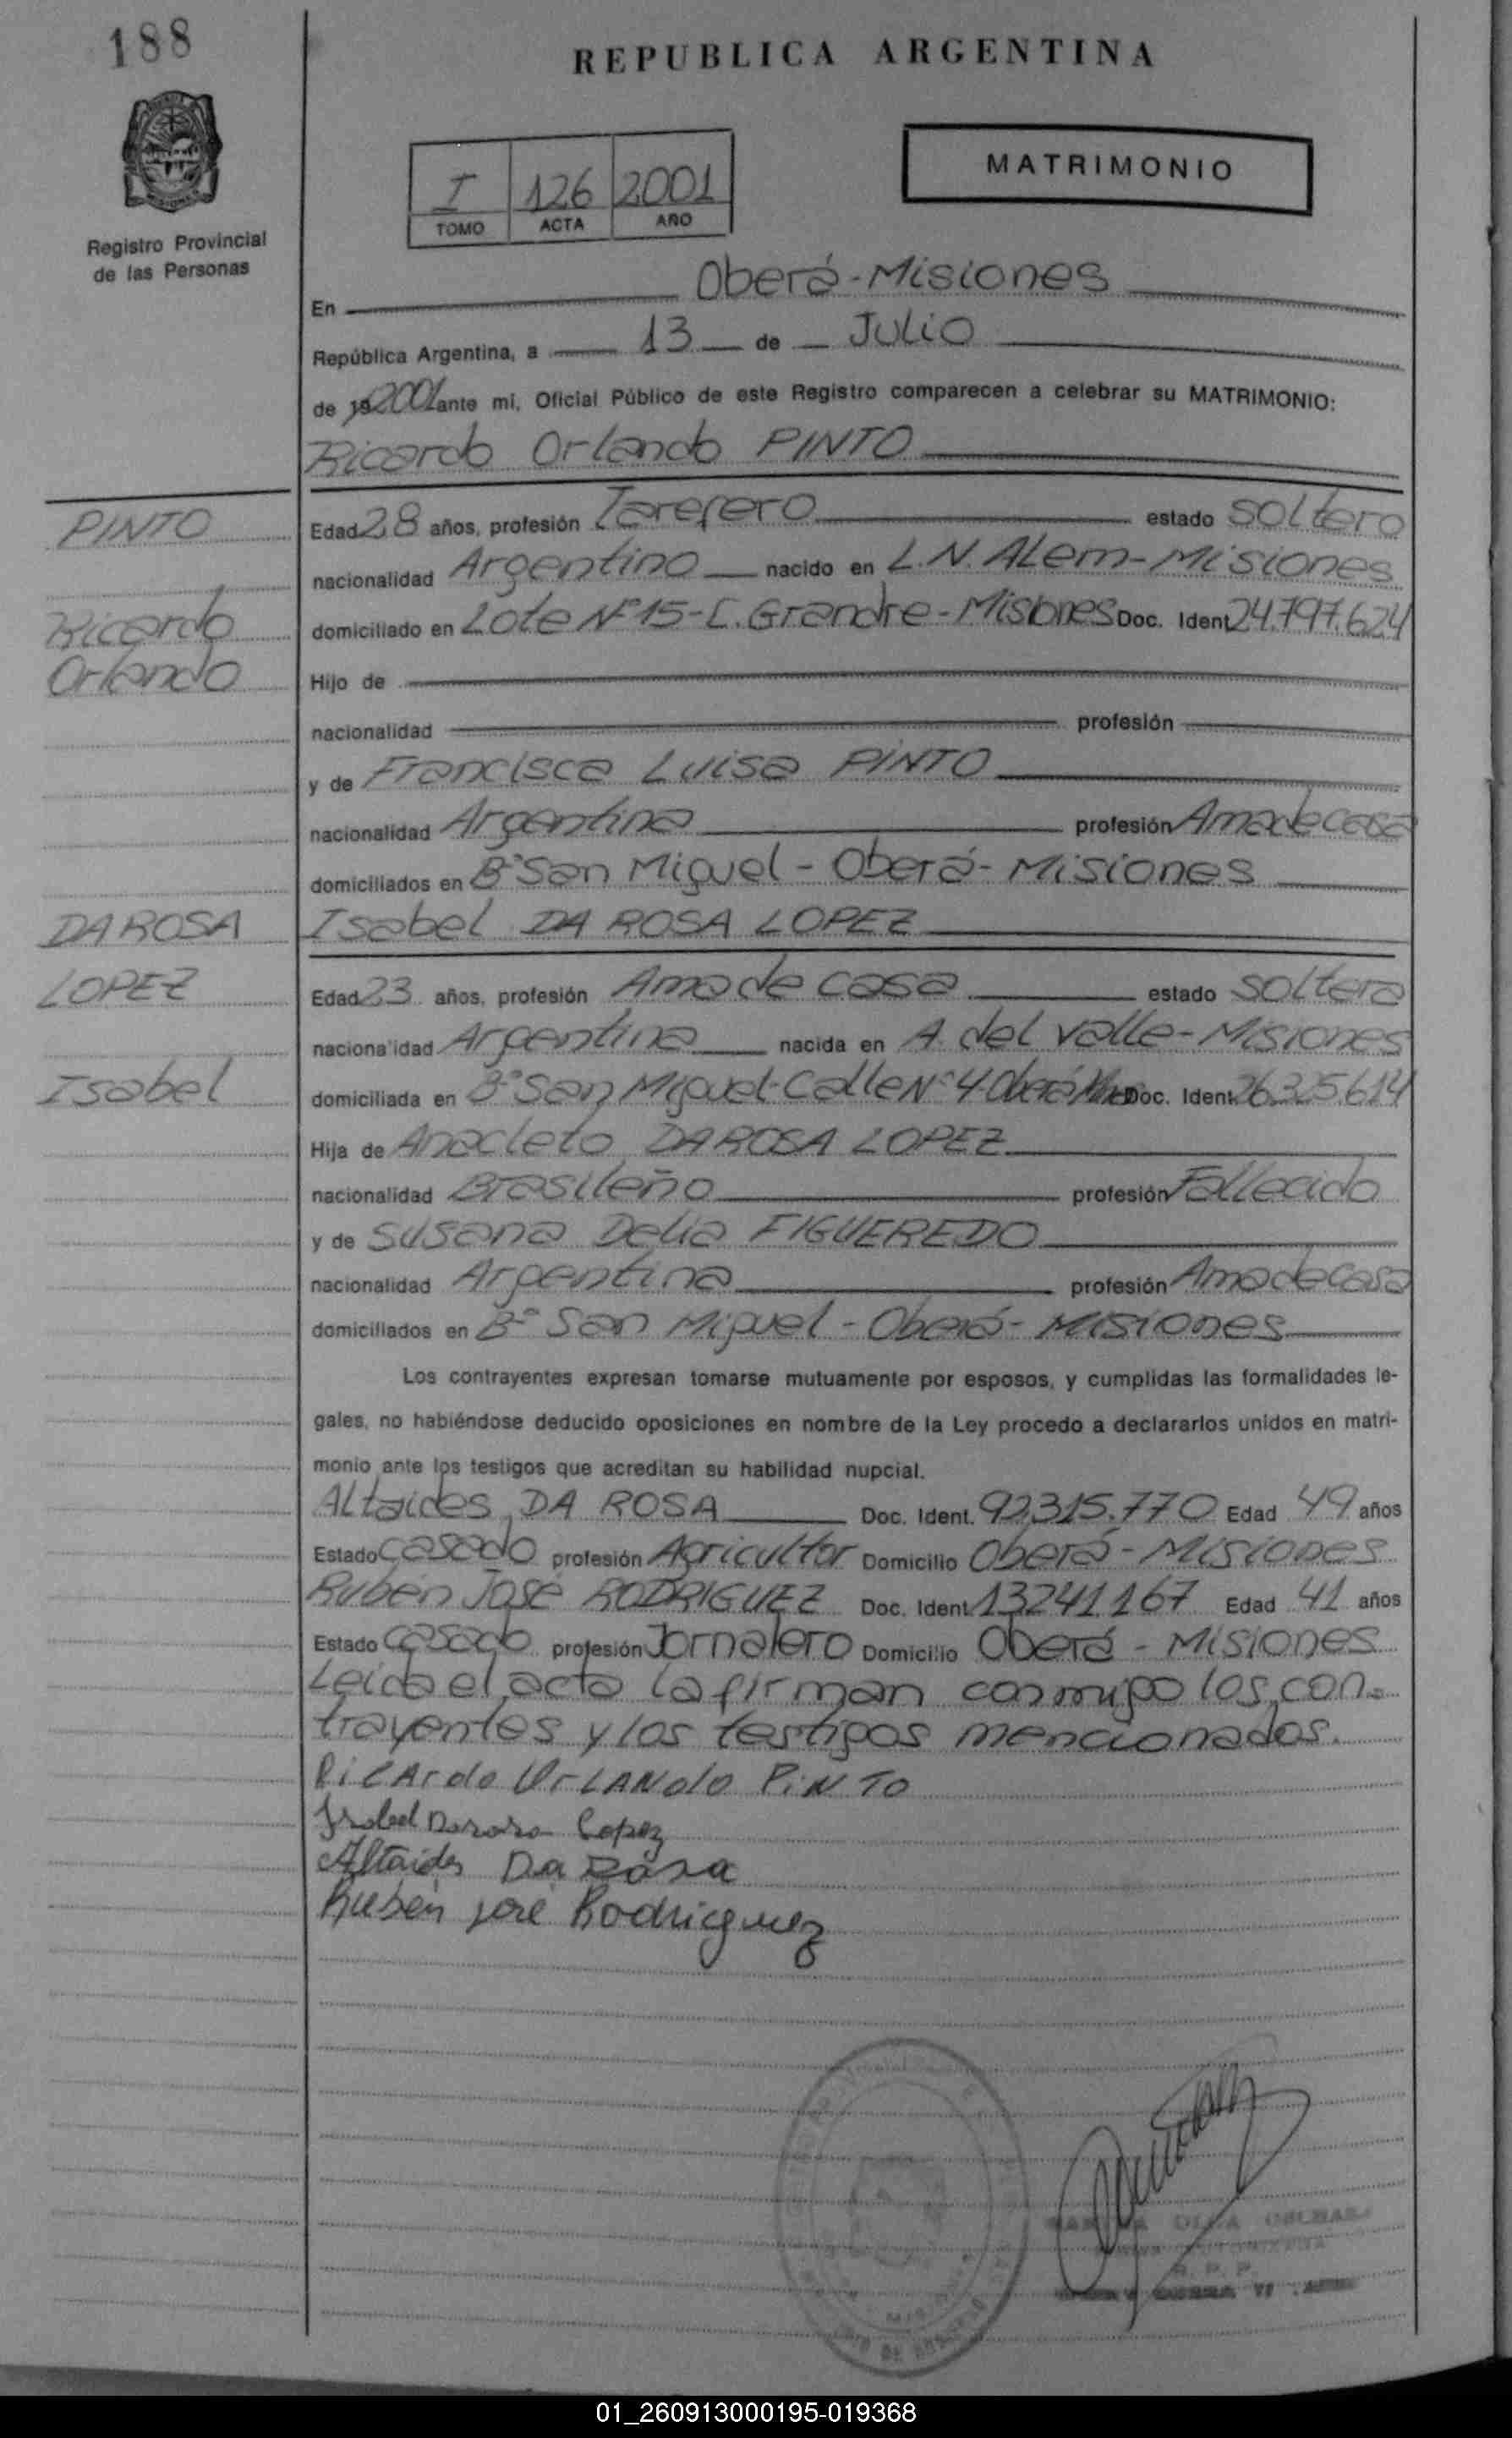 188
REPUBLICA ARGENTINA
MATRIMONIO
I 126 2001
TOMO ACTA AÑO
Registro Provincial
de las Personas
En Oberá-Misiones
República Argentina, a 13 de Julio
de 192001 ante mi, Oficial Público de este Registro comparecen a celebrar su MATRIMONIO:
Ricardo Orlando PINTO
PINTO
Edad 28 años, profesión Tarefero estado soltero
nacionalidad Argentino nacido en L.N. ALem-Misiones
Ricardo
domiciliado en Lote Nº15-C. Grande-Misiones Doc. Ident 24.797.624
Orlando
Hijo de
nacionalidad profesión
y de Francisca Luisa PINTO
nacionalidad Argentina profesión Ama de casa
domiciliados en Bº San Miguel - Oberá - Misiones
DA ROSA
Isabel DA ROSA LOPEZ
LOPEZ
Edad 23 años, profesión Ama de casa estado soltera
nacionalidad Argentina nacida en A. del valle-Misiones
Isabel
domiciliada en Bº San Miguel-Calle Nº 4-Oberá Mnes Doc. Ident. 26.325.614
Hija de Anacleto DA ROSA LOPEZ
nacionalidad Brasileño profesión Fallecido
y de Susana Delia FIGUEREDO
nacionalidad Argentina profesión Ama de casa
domiciliados en Bº San Miguel - Oberá - Misiones
Los contrayentes expresan tomarse mutuamente por esposos, y cumplidas las formalidades le-
gales, no habiéndose deducido oposiciones en nombre de la Ley procedo a declararlos unidos en matri-
monio ante los testigos que acreditan su habilidad nupcial.
ALtaides DA ROSA Doc. Ident. 92.315.770 Edad 49 años
Estado casado profesión Agricultor Domicilio Oberá - Misiones
Rubén José RODRIGUEZ Doc. Ident 13241167 Edad 41 años
Estado casado profesión Jornalero Domicilio Oberá - Misiones
Leída el acta la firman conmigo los con-
trayentes y los testigos mencionados.
RicArdo OrLANdo PiNTO
Isabel Darosa Lopez
Altaides Da Rosa
Rubén José Rodriguez
01_260913000195-019368